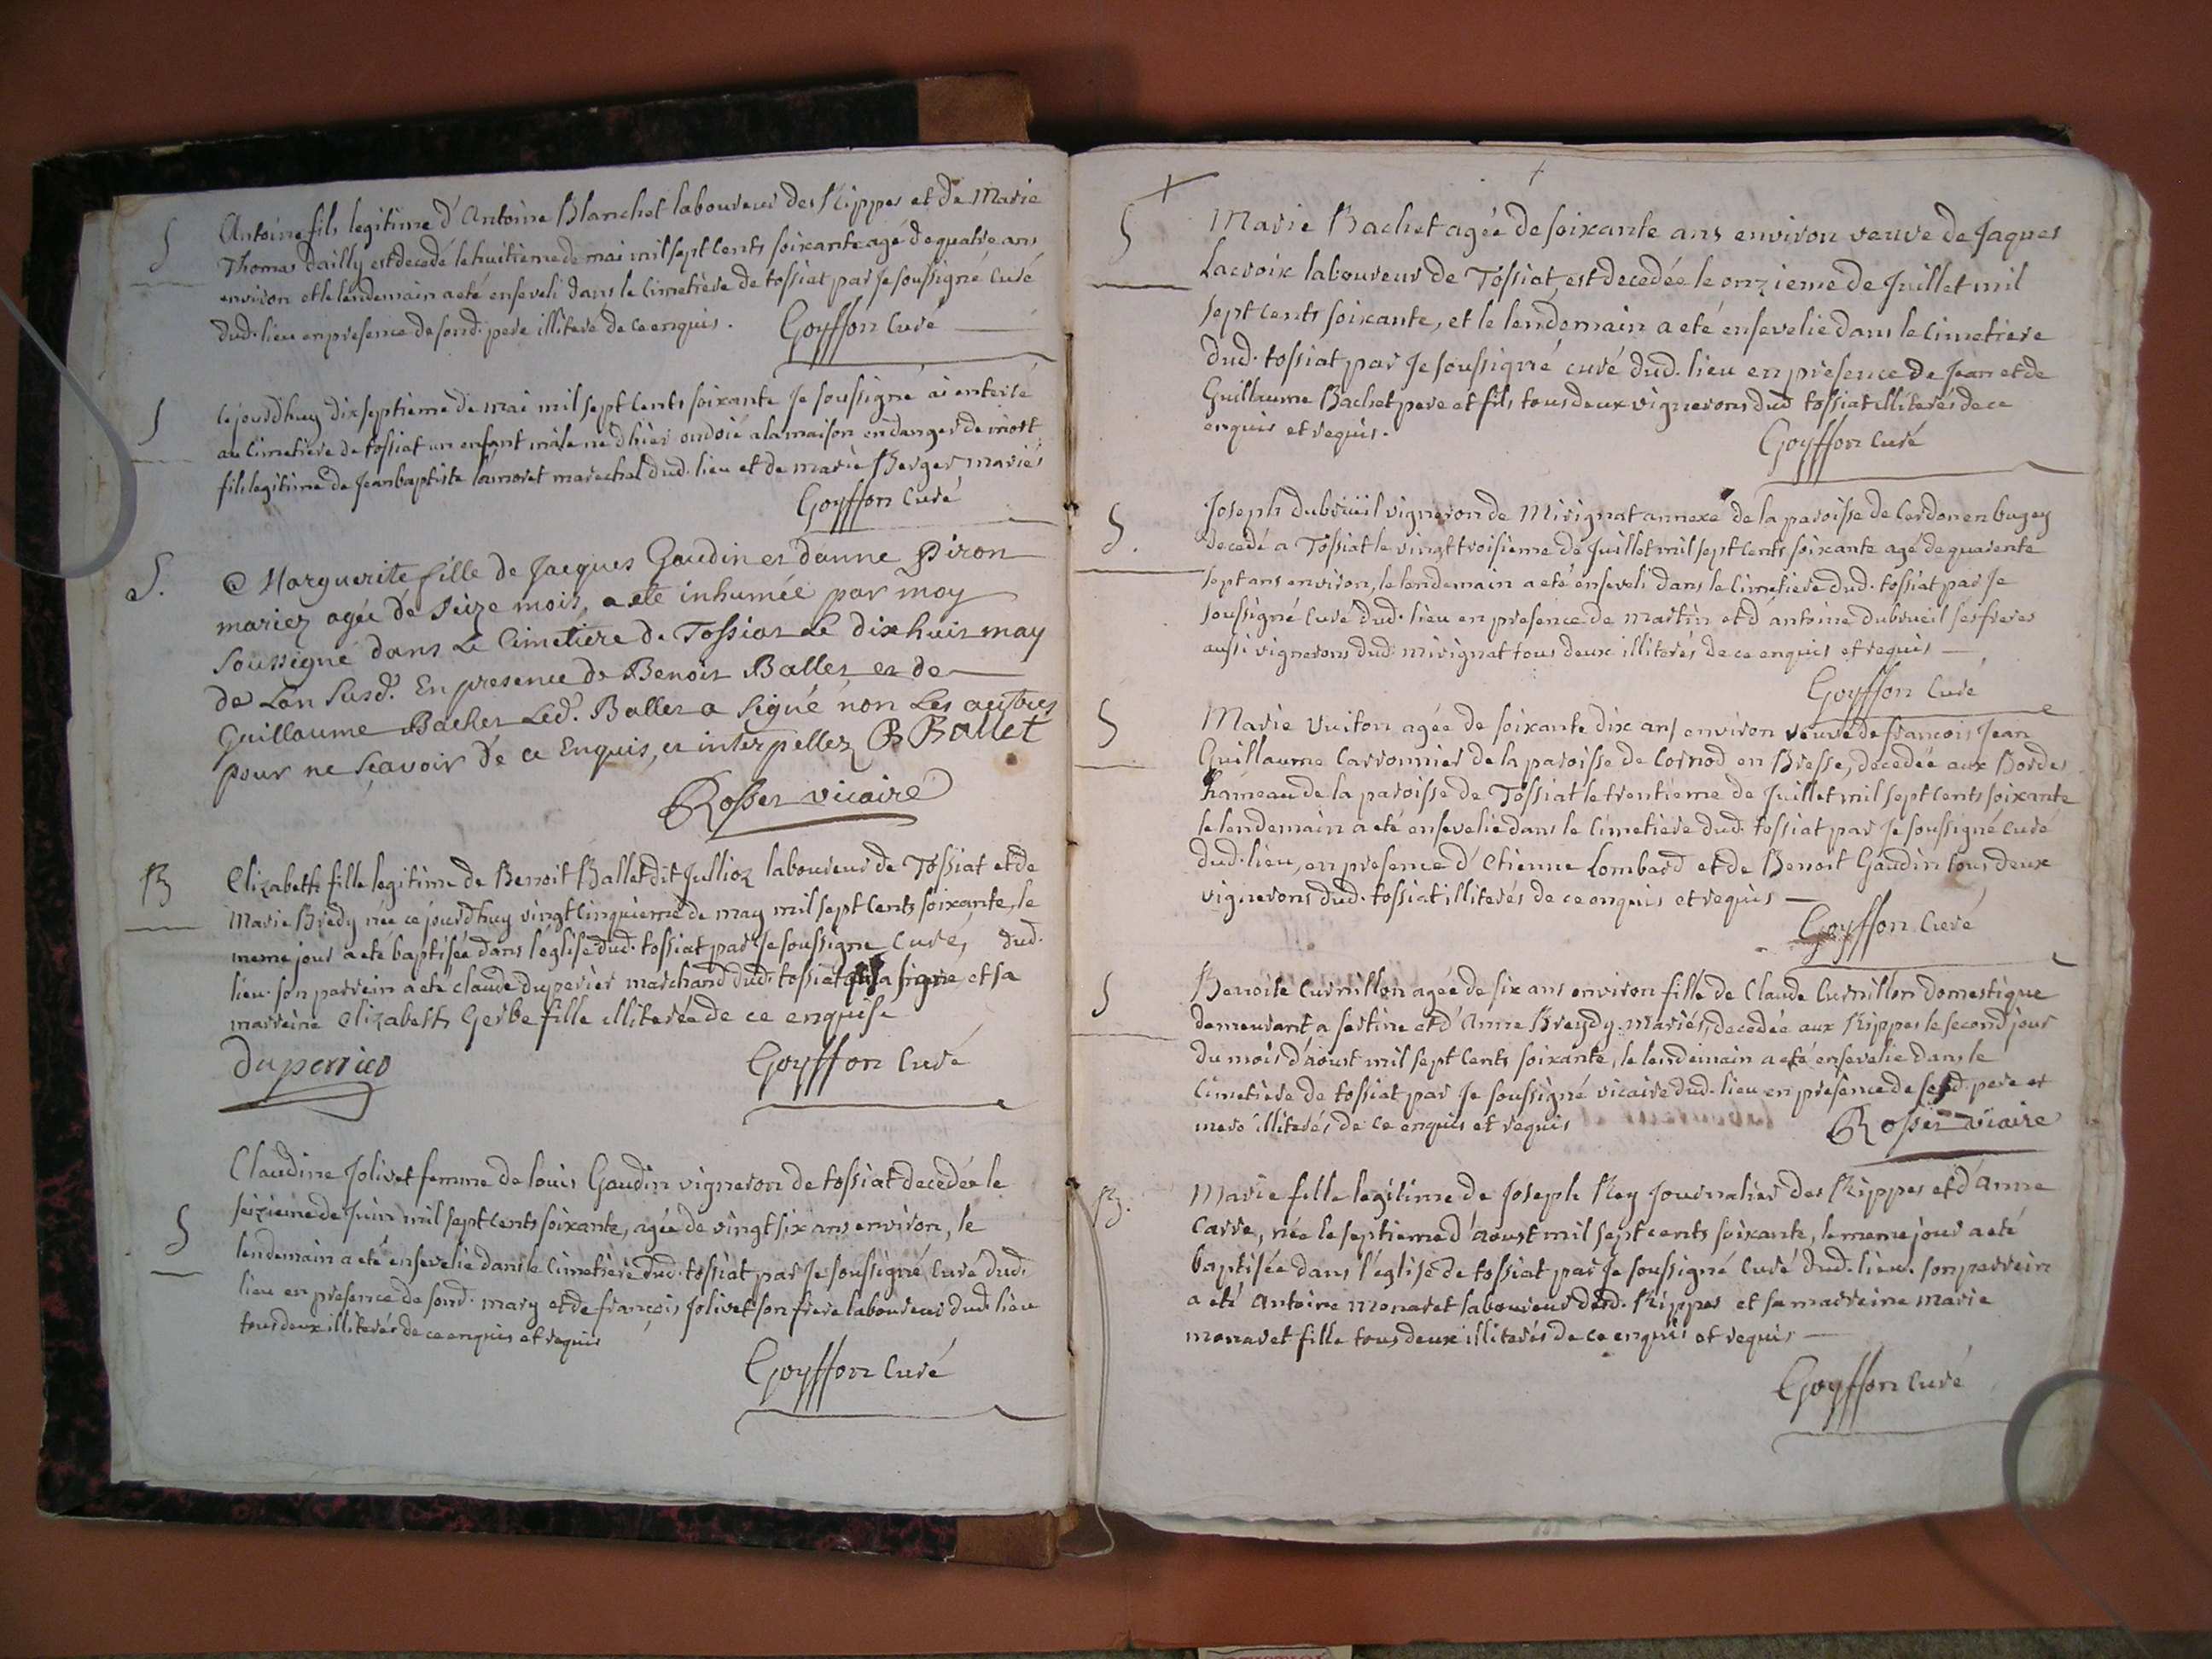 S
Antoine fils legitime d'Antoine Blanchet laboureur des Rippes et de Marie
Thomas dailly est decedé le huitieme de mai mil sept cents soixante agé de quatre ans
environ et le lendemain a eté enseveli dans le cimetière de tossiat par je soussigné curé
dud. lieu en presence de sond. pere illiteré de ce enquis. Goyffon curé
S
Cejourdhuy dix septieme de mai mil sept cents soixante je soussigné ai enterré
au cimetiere de tossiat un enfant mâle né d'hier ondoié a la maison en danger de mort
fils legitime de Jean baptiste marechal dud. lieu et de marie Berger mariés
Goyffon curé
S.
Marguerite fille de Jacques Gaudin et danne Piron
mariez agée de seize mois, a ete inhumée par moy
soussigné dans Le Cimetiere de Tossiat Le dixhuit may
de Lan susd. En presence de Benoit Ballet et de
Guillaume Bachet Led. Ballet a signé non Les autres
pour ne sçavoir de ce Enquis, et interpellez B Ballet
Rosset vicaire
B
Elizabeth fille legitime de Benoit Ballet dit Jullioz laboureur de Tossiat et de
Marie Bredy née cejourdhuy vingt cinquieme de may mil sept cents soixante, le
meme jour a eté baptisée dans l'eglise dud. tossiat par je soussigné curé, dud.
lieu. son parrein a eté claude duperier marchand dud. tossiat qui a signé, et sa
marreine Elizabeth Gerbe fille illiterée de ce enquise
duperrier Goyffon curé
S
Claudine Jolivet femme de louis Gaudin vigneron de tossiat decedée le
seizieme de juin mil sept cents soixante, agée de vingt six ans environ, le
lendemain a eté ensevelie dans le cimetière dud. tossiat par je soussigné curé dud.
lieu en presence de sond. mary et de françois Jolivet son frere laboureur dud. lieu
tous deux illiterés de ce enquis et requis
Goyffon curé
S
Marie Bachet agée de soixante ans environ veuve de Jaques
Lacroix laboureur de Tossiat, est decedée le onzieme de Juillet mil
sept cents soixante, et le lendemain a eté ensevelie dans le cimetiere
dud. tossiat par je soussigné curé dud. lieu en presence de Jean et de
Guillaume Bachet pere et fils tous deux vignerons dud tossiat illiterés de ce
enquis et requis.
Goyffon curé
S.
Joseph dubrüeil vigneron de Mirignat annexe de la paroisse de Cerdon en bugey
decedé a Tossiat le vingt troisieme de Juillet mil sept cents soixante agé de quarente
sept ans environ, le lendemain a eté enseveli dans le cimetiere dud. tossiat par je
soussigné curé dud. lieu en presence de martin et d'antoine dubrueil ses freres
aussi vignerons dud. mirignat tous deux illiterés de ce enquis et requis
Goyffon curé
S
Marie Vuiton agée de soixante dix ans environ veuve de francois Jean
Guillaume Carronnier de la paroisse de Cornod en Bresse, decedée aux Bordes
hameau de la paroisse de Tossiat le trentieme de Juillet mil sept cents soixante
le lendemain a eté ensevelie dans le cimetiere dud. tossiat par je soussigné curé
dud. lieu, en presence d'Etienne Lombard et de Benoit Gaudin tous deux
vignerons dud. tossiat illiterés de ce enquis et requis
Goyffon curé
S
Benoite Curnillon agée de six ans environ fille de Claude Curnillon domestique
demeurant a sertine et d'Anne Breydy mariés, decedée aux Rippes le second jour
du mois d'aoust mil sept cents soixante, le lendemain a eté ensevelie dans le
cimetière de tossiat par je soussigné vicaire dud. lieu en presence de sesd. pere et
mere illiterés de ce enquis et requis
Rosset vicaire
B.
Marie fille legitime de Joseph Rey Journalier des Rippes et d'anne
Carre, née le septieme d'aoust mil sept cents soixante, le meme jour a eté
baptisée dans l'eglise de tossiat par je soussigné curé dud. lieu. son parrein
a eté Antoine monaret laboureur desd. Rippes et sa marreine marie
monaret fille tous deux illiterés de ce enquis et requis
Goyffon curé